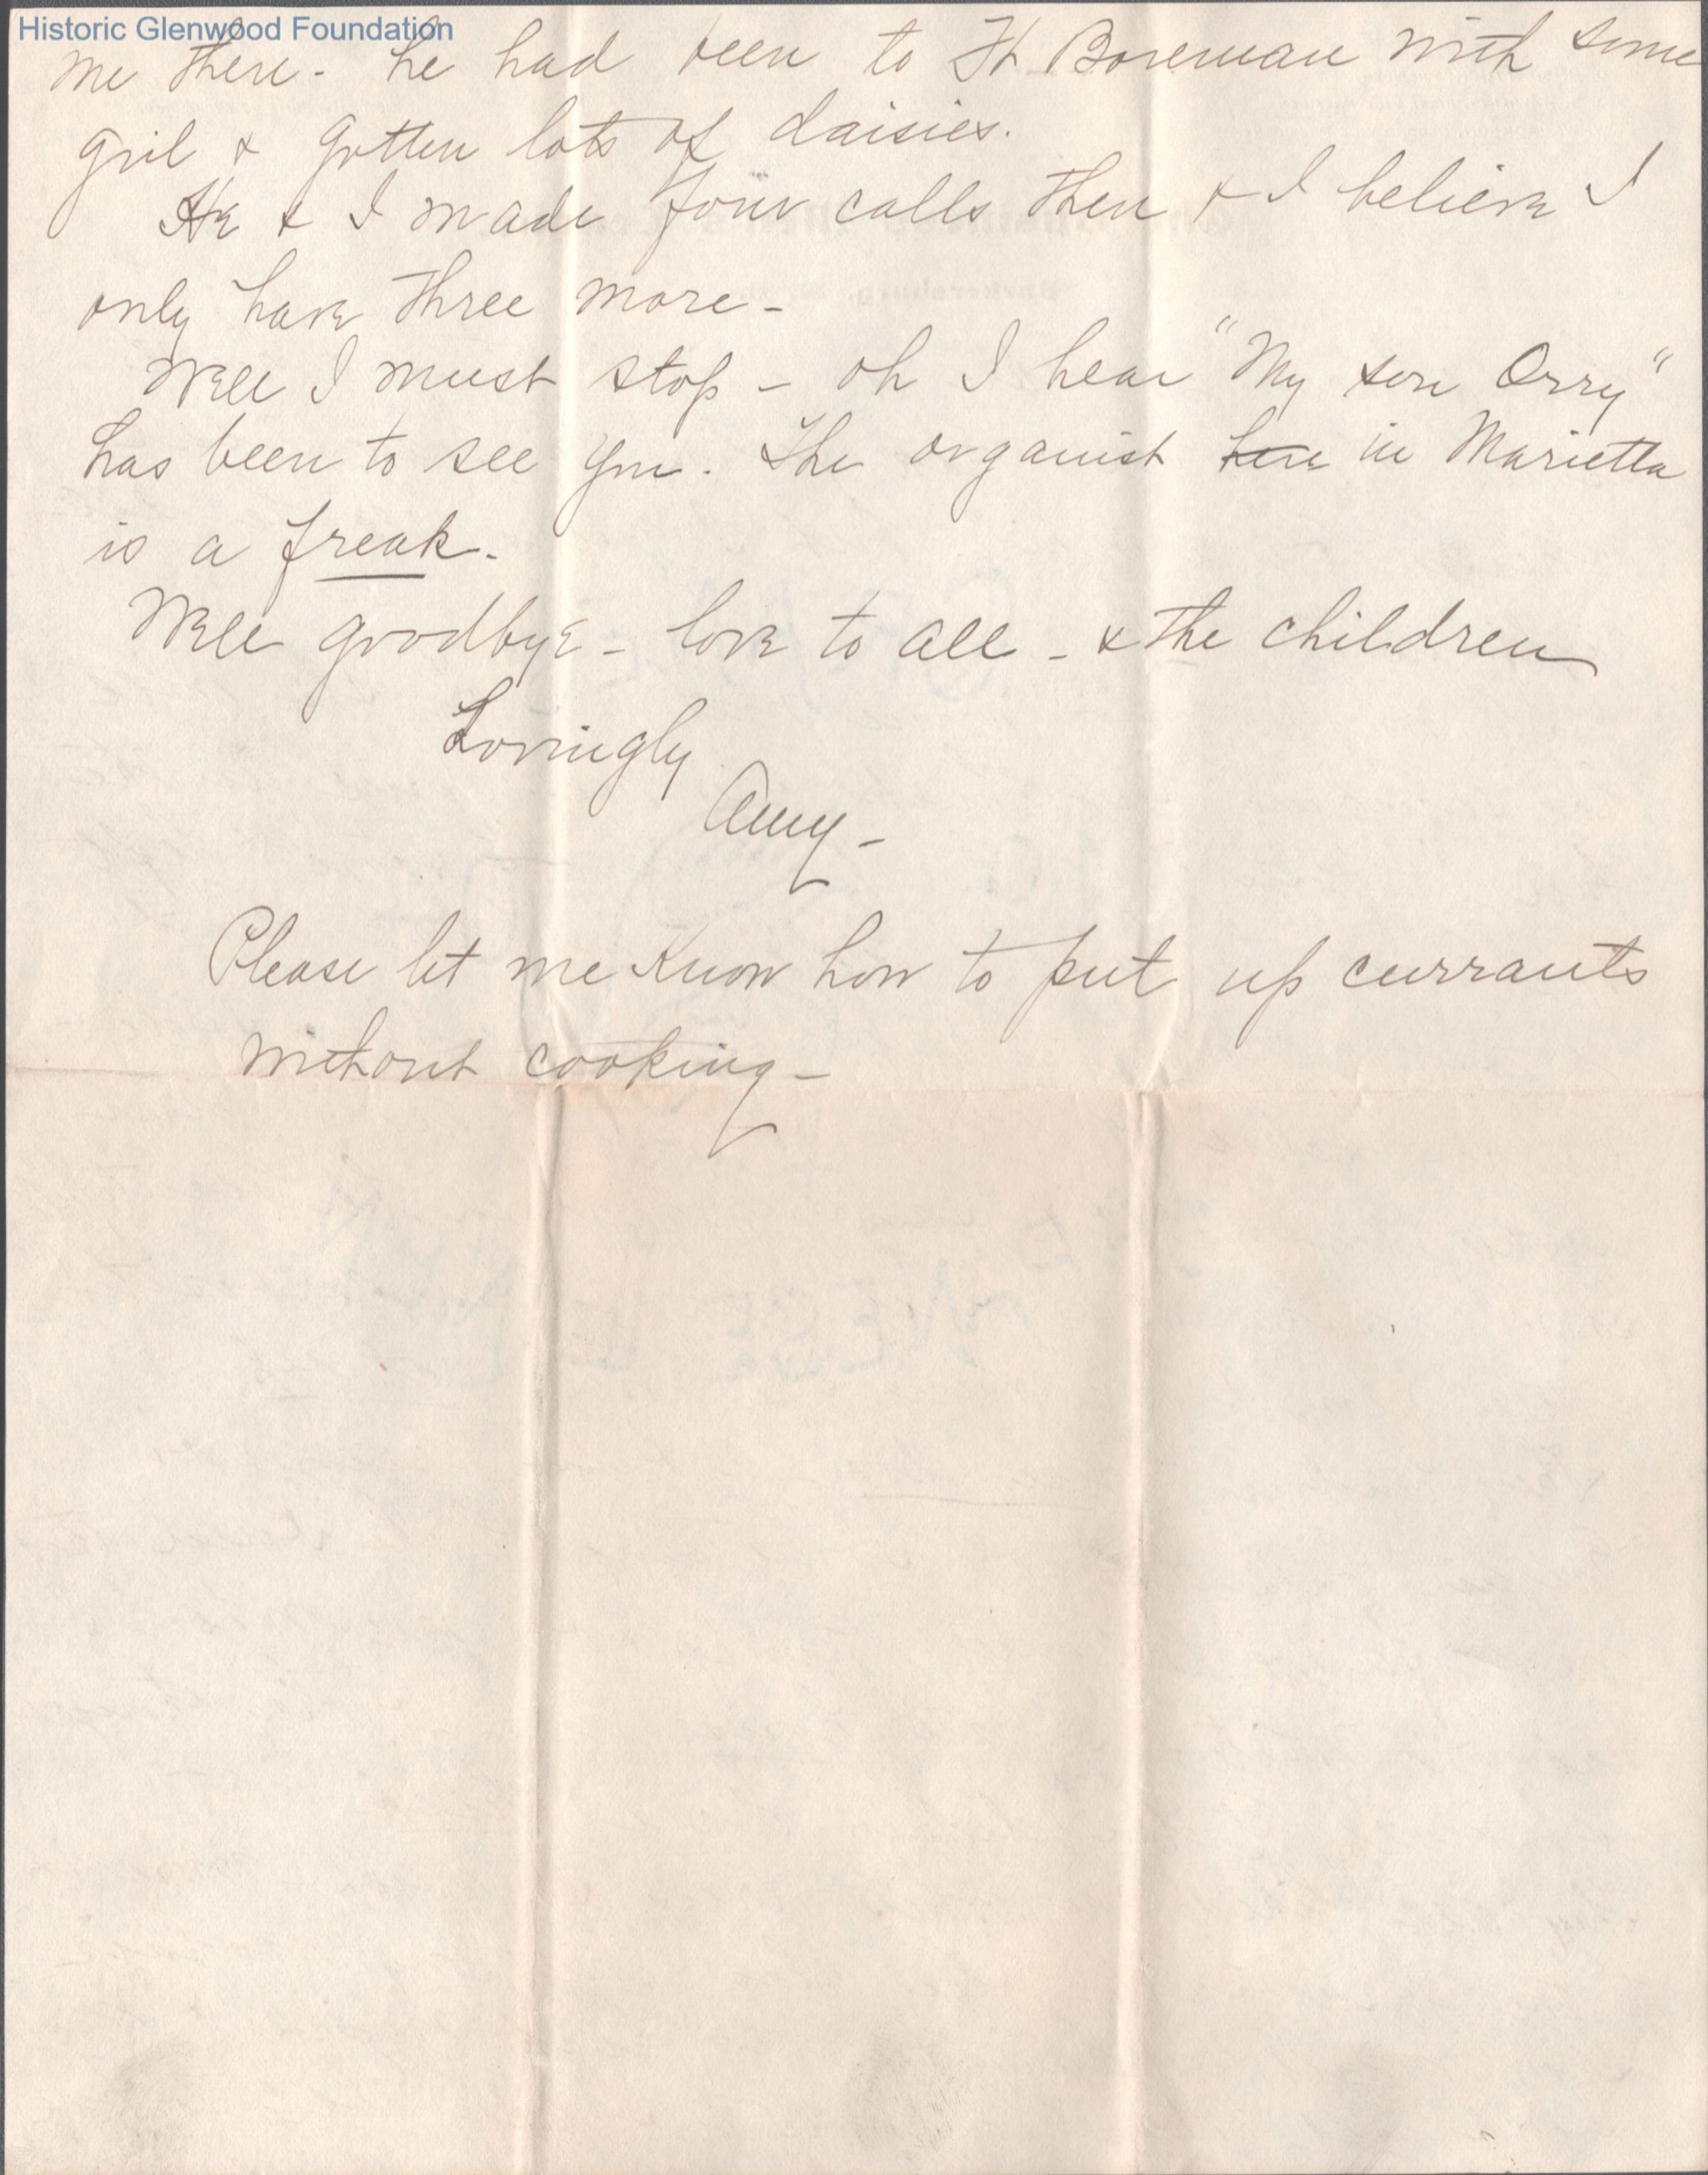 Historic Glenwood Foundation
me there - he had been to Ft Boreman with some
girl & gotten lots of daisies.
He & I made four calls then & I believe I
only have three more -
Well I must stop - oh I hear "My son Orry"
has been to see you. The organist here in Marietta
is a freak.
Well goodbye - love to all - & the children
Lovingly
Amy -
Please let me know how to put up currants
without cooking -